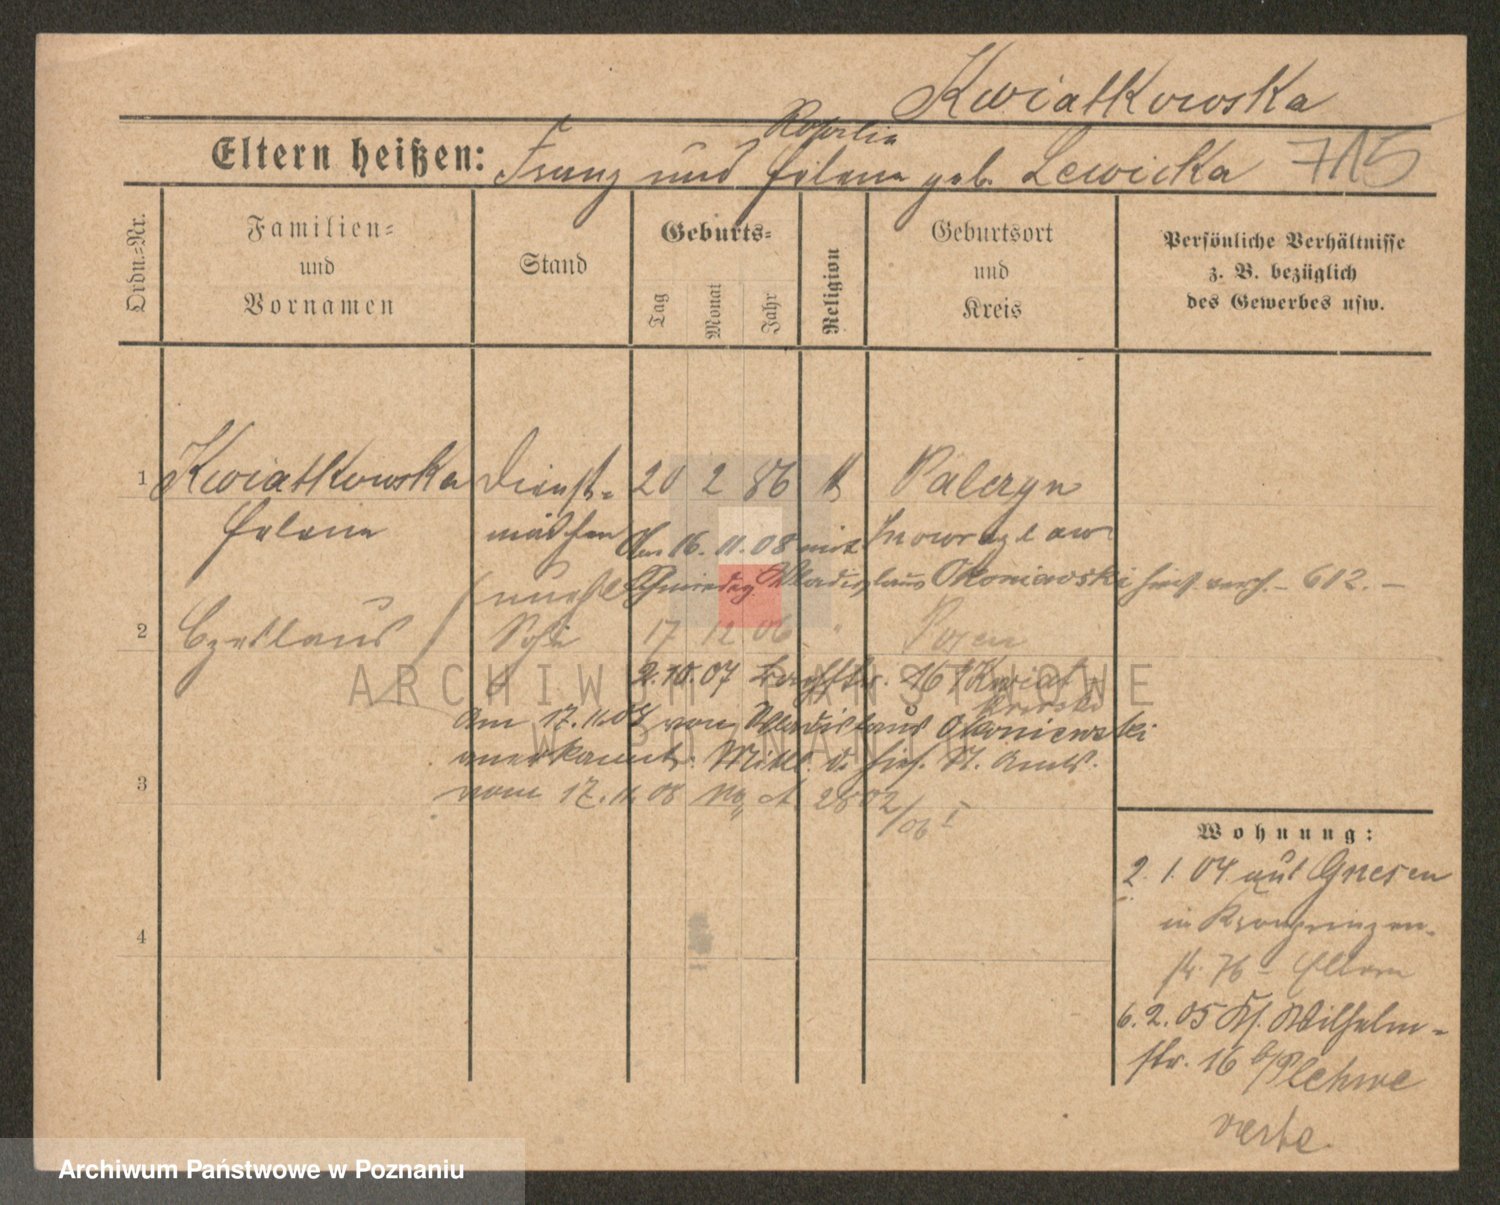 Kwiatkowska
Eltern heißen: Franz und Helena geb. Lewicka 715
Rosalia
Ordn.-Nr.
Familien-
und
Vornamen
Stand
Geburts-
Tag
Monat
Jahr
Religion
Geburtsort
und
Kreis
Persönliche Verhältnisse
z. B. bezüglich
des Gewerbes usw.
1 Kwiatkowska Dienst- 20 2 86 k Palczyn
Helena mädchen Am 16. 11. 08 mit Inowrazlaw
Wladislaus Okoniewski hies. verh. - 612. -
2 Czeslaus Sohn 17 12 06 " Posen
2.10.07 16 Kwiat-
kowski
Am 17.11.08 von Wladislaus Okoniewski
anerkannt. Mittl. d. hies. St. Amts.
3 vom 17. 11. 08 No 2802/06 I
4
Wohnung:
2. 1. 04 aus Gnesen
in Kronprinzen-
str. 76 - Eltern
6. 2. 05 Kl. Wilhelm-
str. 16 b/Plehwe
verte.
ARCHIWUM PAŃSTWOWE
W POZNANIU
Archiwum Państwowe w Poznaniu